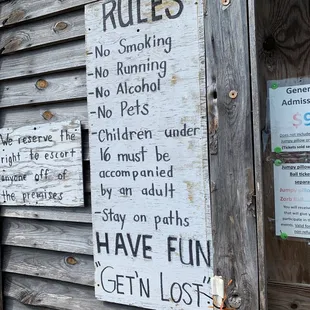 RULES
-No Smoking
-No Running
-No Alcohol
-No Pets
-Children under
16 must be
accompanied
by an adult
-Stay on paths
HAVE FUN
"GET'N LOST"
We reserve the
right to escort
anyone off of
the premises
General
Admiss
$9